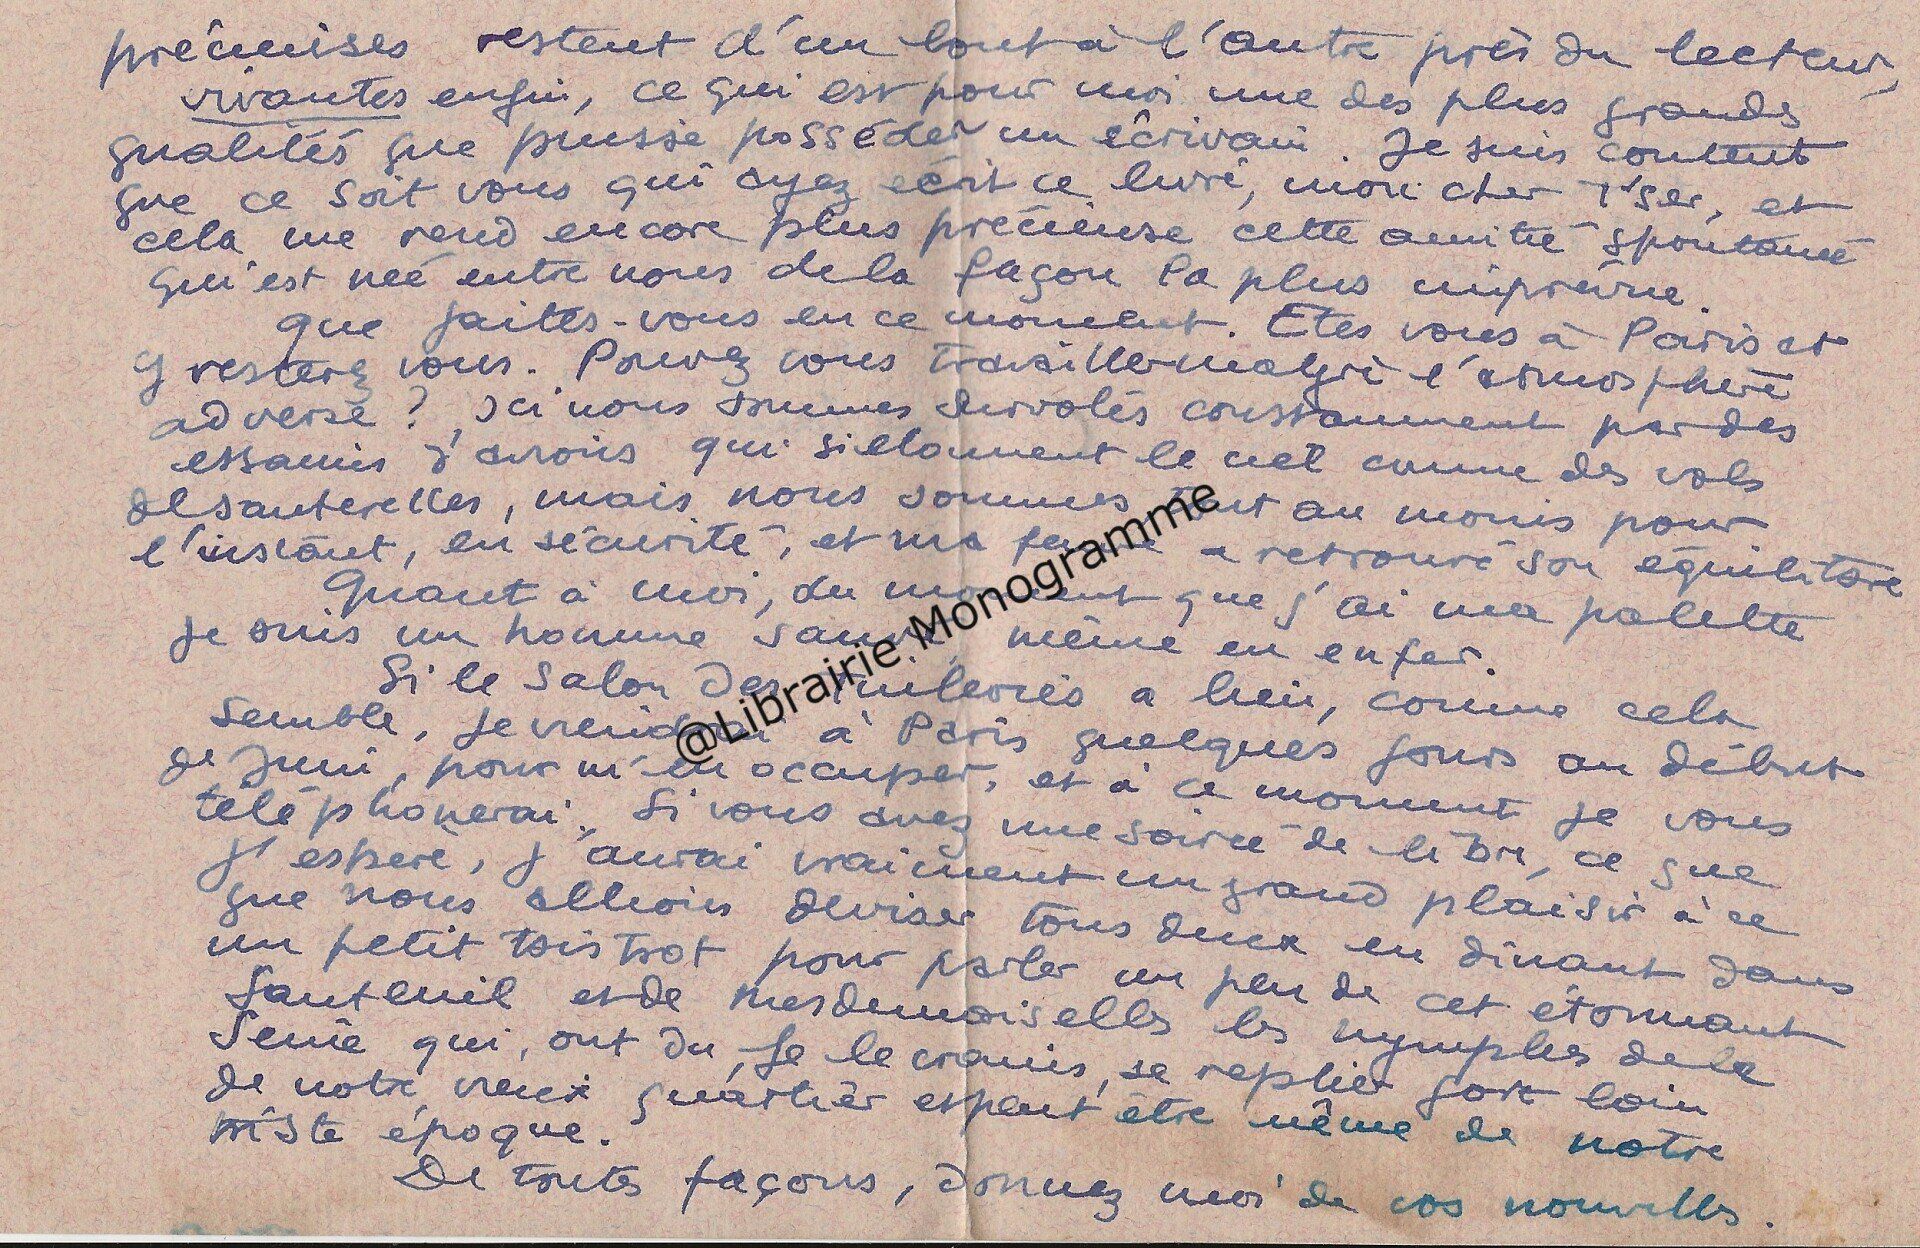 prémises restent d'un bout à l'autre près du lecteur,
vivantes enfin, ce qui est pour moi une des plus grandes
qualités que puisse posséder un écrivain. Je suis content
que ce soit vous qui ayez écrit ce livre, mon cher et
cela me rend encore plus précieuse cette amitié spontanée
qui est née entre nous de la façon la plus imprévue.
Que faites-vous en ce moment. Etes vous à Paris et
y resterez vous. Pouvez vous travailler malgré l'atmosphère
adverse ? Ici nous sommes survolés constamment par des
essaims d'avions qui sillonnent le ciel comme des vols
de sauterelles, mais nous sommes tout au moins pour
l'instant, en sécurité, et ma femme a retrouvé son équilibre
Quant à moi, du moment que j'ai ma palette
je suis un homme sauvé, même en enfer.
Si le Salon des Tuileries a lieu, comme cela
semble, je viendrai à Paris quelques jours au début
de Juin, pour m'en occuper, et à ce moment je vous
téléphonerai. Si vous avez une soirée de libre, ce que
j'espère, j'aurai vraiment un grand plaisir à ce
que nous allions deviser tous deux en dînant dans
un petit bistrot pour parler un peu de cet étonnant
Santeuil et de mesdemoiselles les nymphes de la
Seine qui, ont du, je le crains, se replier fort loin
de notre vieux quartier et peut être même de notre
triste époque.
De toutes façons, donnez moi de vos nouvelles.
@Librairie Monogramme